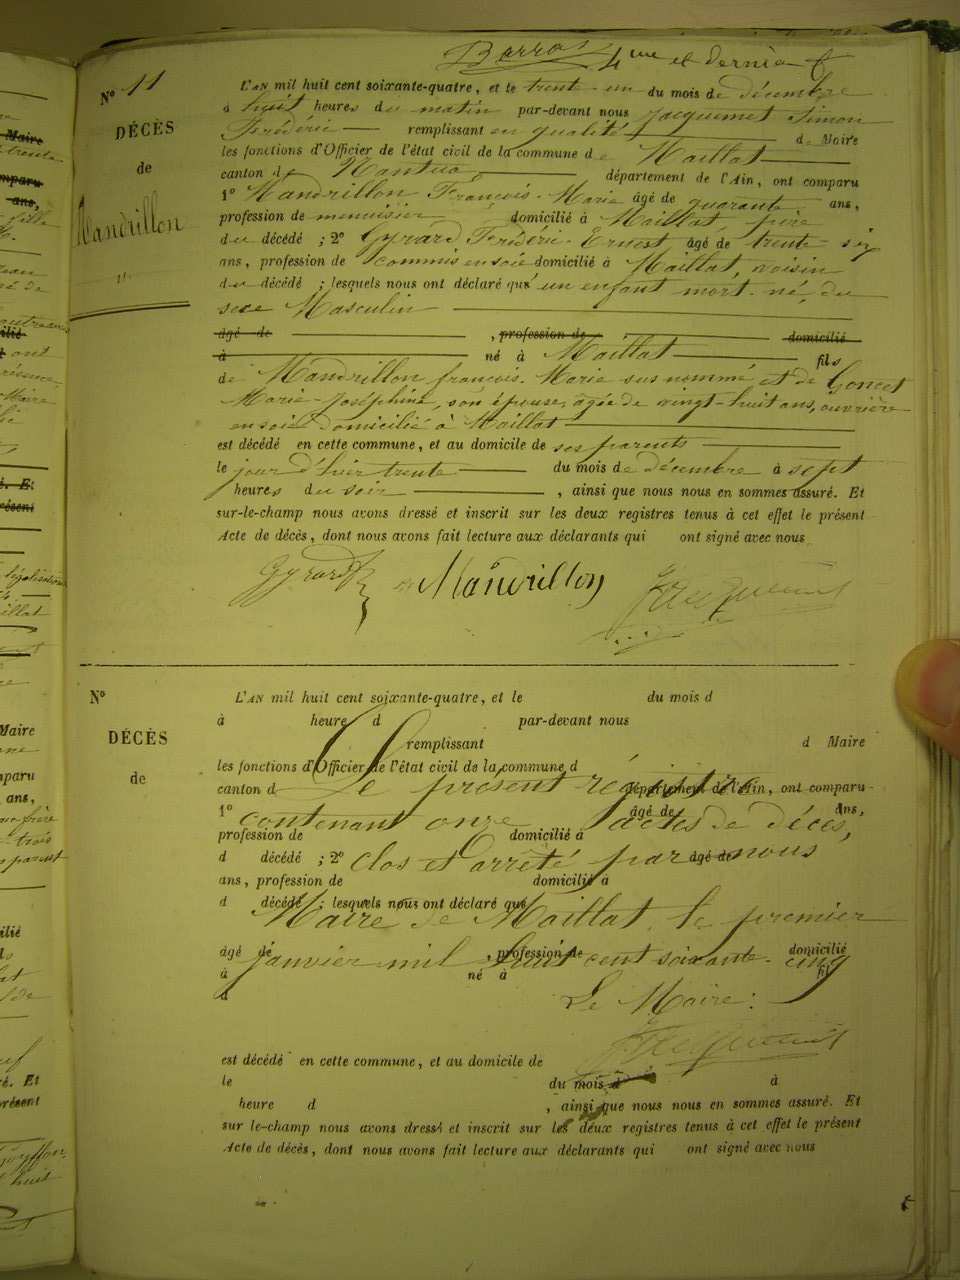 4me et dernier f
N° 11
DÉCÈS
de
Mandrillon
L'AN mil huit cent soixante-quatre, et le trente-un du mois de décembre
à huit heures du matin par-devant nous Jacquemet Simon
Frédéric remplissant en qualité de Maire
les fonctions d'Officier de l'état civil de la commune de Maillat
canton d Nantua département de l'Ain, ont comparu
1° Mandrillon François-Marie âgé de quarante ans,
profession de menuisier domicilié à Maillat, père
du décédé ; 2° Gyrard Frédéric-Ernest âgé de trente-six
ans, profession de commis en soie domicilié à Maillat, voisin
du décédé ; lesquels nous ont déclaré que un enfant mort-né, du
sexe Masculin
âgé de , profession de domicilié
à né à Maillat fils
de Mandrillon françois-Marie sus nommé et de Goncet
Marie-Joséphine, son épouse, agée de vingt-huit ans, ouvrière
en soie domicilié à Maillat
est décédé en cette commune, et au domicile de ses parents
le jour d'hier trente du mois de décembre à sept
heures du soir , ainsi que nous nous en sommes assuré. Et
sur-le-champ nous avons dressé et inscrit sur les deux registres tenus à cet effet le présent
Acte de décès, dont nous avons fait lecture aux déclarants qui ont signé avec nous
Gyrard Mandrillon Jacquemet
N°
DÉCÈS
de
L'AN mil huit cent soixante-quatre, et le du mois d
à heure d par-devant nous
remplissant d Maire
les fonctions d'Officier de l'état civil de la commune d
canton d département de l'Ain, ont comparu
Le présent régistre
1° âgé de ans,
contenant onze actes de décès,
profession de domicilié à
d décédé ; 2° âgé de
clos et arrêté par nous
ans, profession de domicilié à
d décédé ; lesquels nous ont déclaré que
Maire de Maillat, le premier
âgé de , profession de domicilié
janvier mil huit cent soixante-cinq
à né à fil
d
Le Maire:
Jacquemet
est décédé en cette commune, et au domicile de
le du mois d à
heure d , ainsi que nous nous en sommes assuré. Et
sur le-champ nous avons dressé et inscrit sur les deux registres tenus à cet effet le présent
Acte de décès, dont nous avons fait lecture aux déclarants qui ont signé avec nous